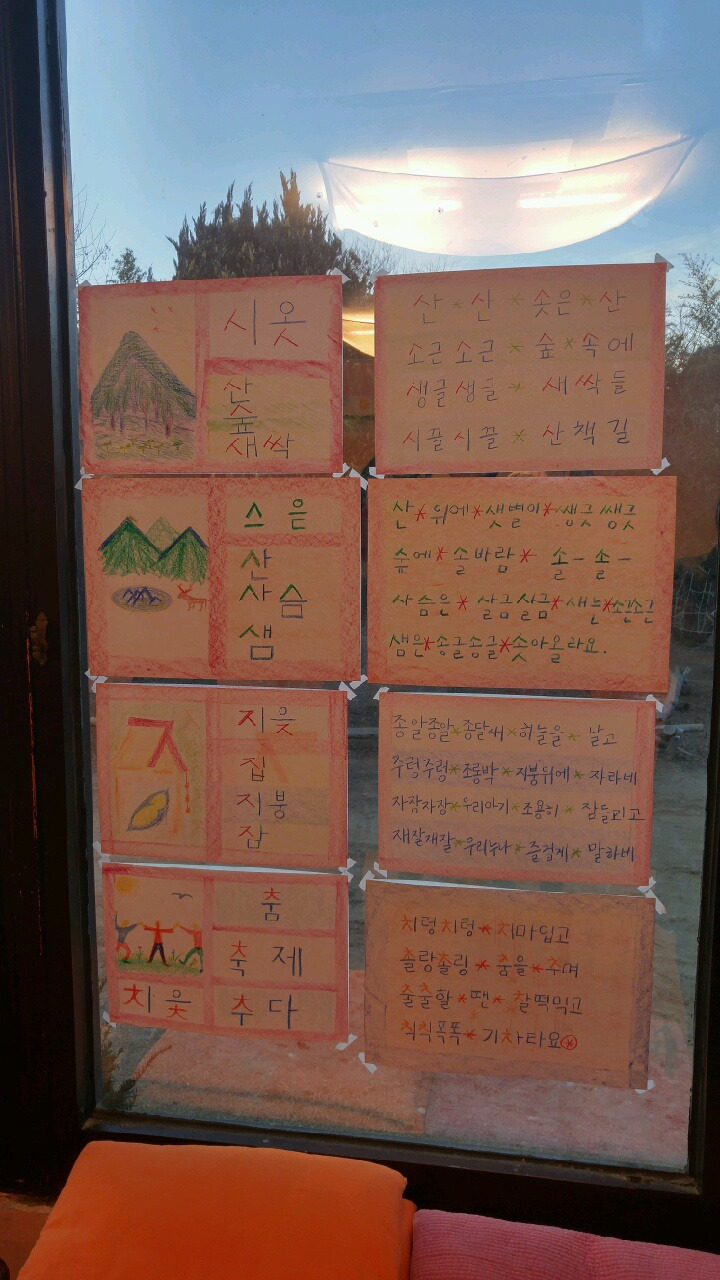 시옷
산
숲
새싹
산 * 산 * 솟은 * 산
소근소근 * 숲 * 속에
생글생글 * 새싹들
시끌시끌 * 산책길
스은
산
사슴
샘
산*위에*샛별이*쌩긋쌩긋
숲에*솔바람* 솔-솔-
사슴은*살금살금*새는*소근소근
샘은*송글송글*솟아올라요.
지읒
집
지붕
잠
종알종알*종달새*하늘을*날고
주렁주렁*조롱박*지붕위에*자라네
자장자장*우리아기*조용히*잠들리고
재잘재잘*우리누나*즐겁게*말하네
춤
축제
치읓 추다
치렁치렁*치마입고
촐랑촐랑*춤을*추며
출출할*땐*찰떡먹고
칙칙폭폭*기차타요*